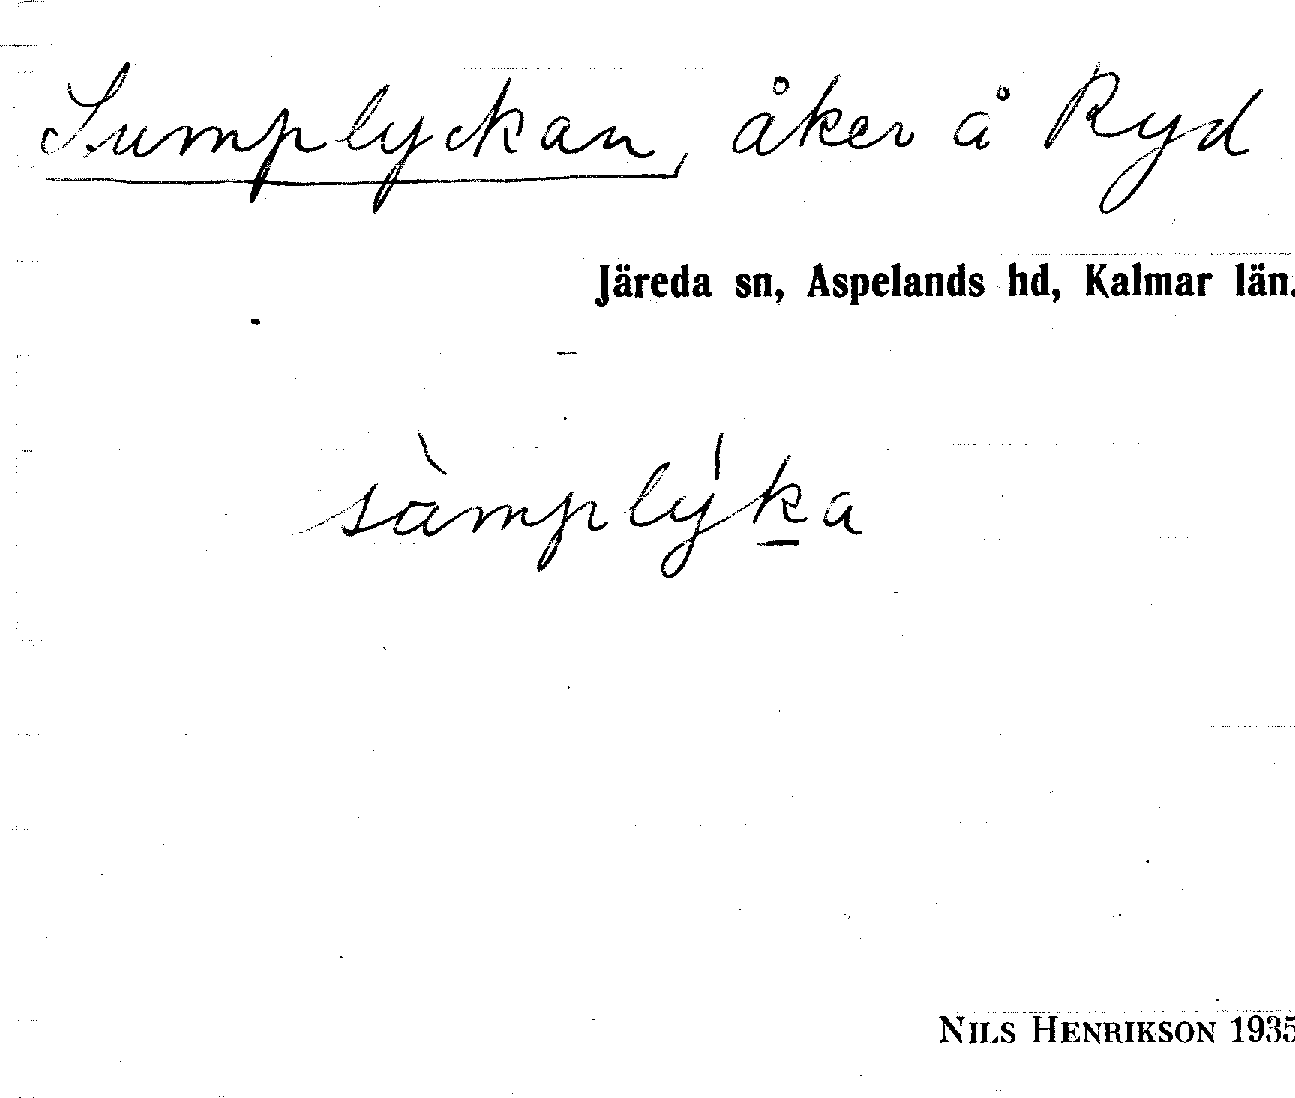 Sumplyckan, åker å Ryd
Järeda sn, Aspelands hd, Kalmar län.
sàmplýka
NILS HENRIKSON 1935